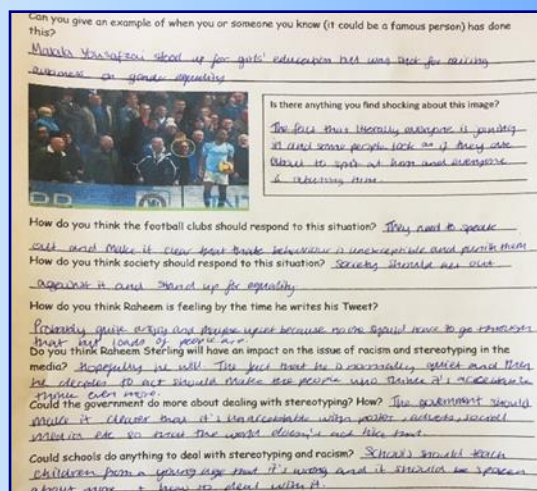 Can you give an example of when you or someone you know (it could be a famous person) has done
this?
Malala Yousafzai stood up for girls' education but was shot for raising
awareness on gender equality
Is there anything you find shocking about this image?
The fact that literally everyone is joining
in and some people look as if they are
about to spit at him and everyone
is abusing him.
How do you think the football clubs should respond to this situation? They need to speak
out and make it clear that that behaviour is unexceptible and punish them
How do you think society should respond to this situation? Society should act out
against it and stand up for equality
How do you think Raheem is feeling by the time he writes his Tweet?
Probably quite angry and maybe upset because no one should have to go through
that but loads of people are.
Do you think Raheem Sterling will have an impact on the issue of racism and stereotyping in the
media? Hopefully he will. The fact that he is normally quiet and then
he decides to act should make the people who think it's acceptable
think even more.
Could the government do more about dealing with stereotyping? How? The government should
make it clearer that it's unacceptable with poster, adverts, social
media etc so that the world doesn't act like that.
Could schools do anything to deal with stereotyping and racism? Schools should teach
children from a young age that it's wrong and it should be spoken
about more + how to deal with it.